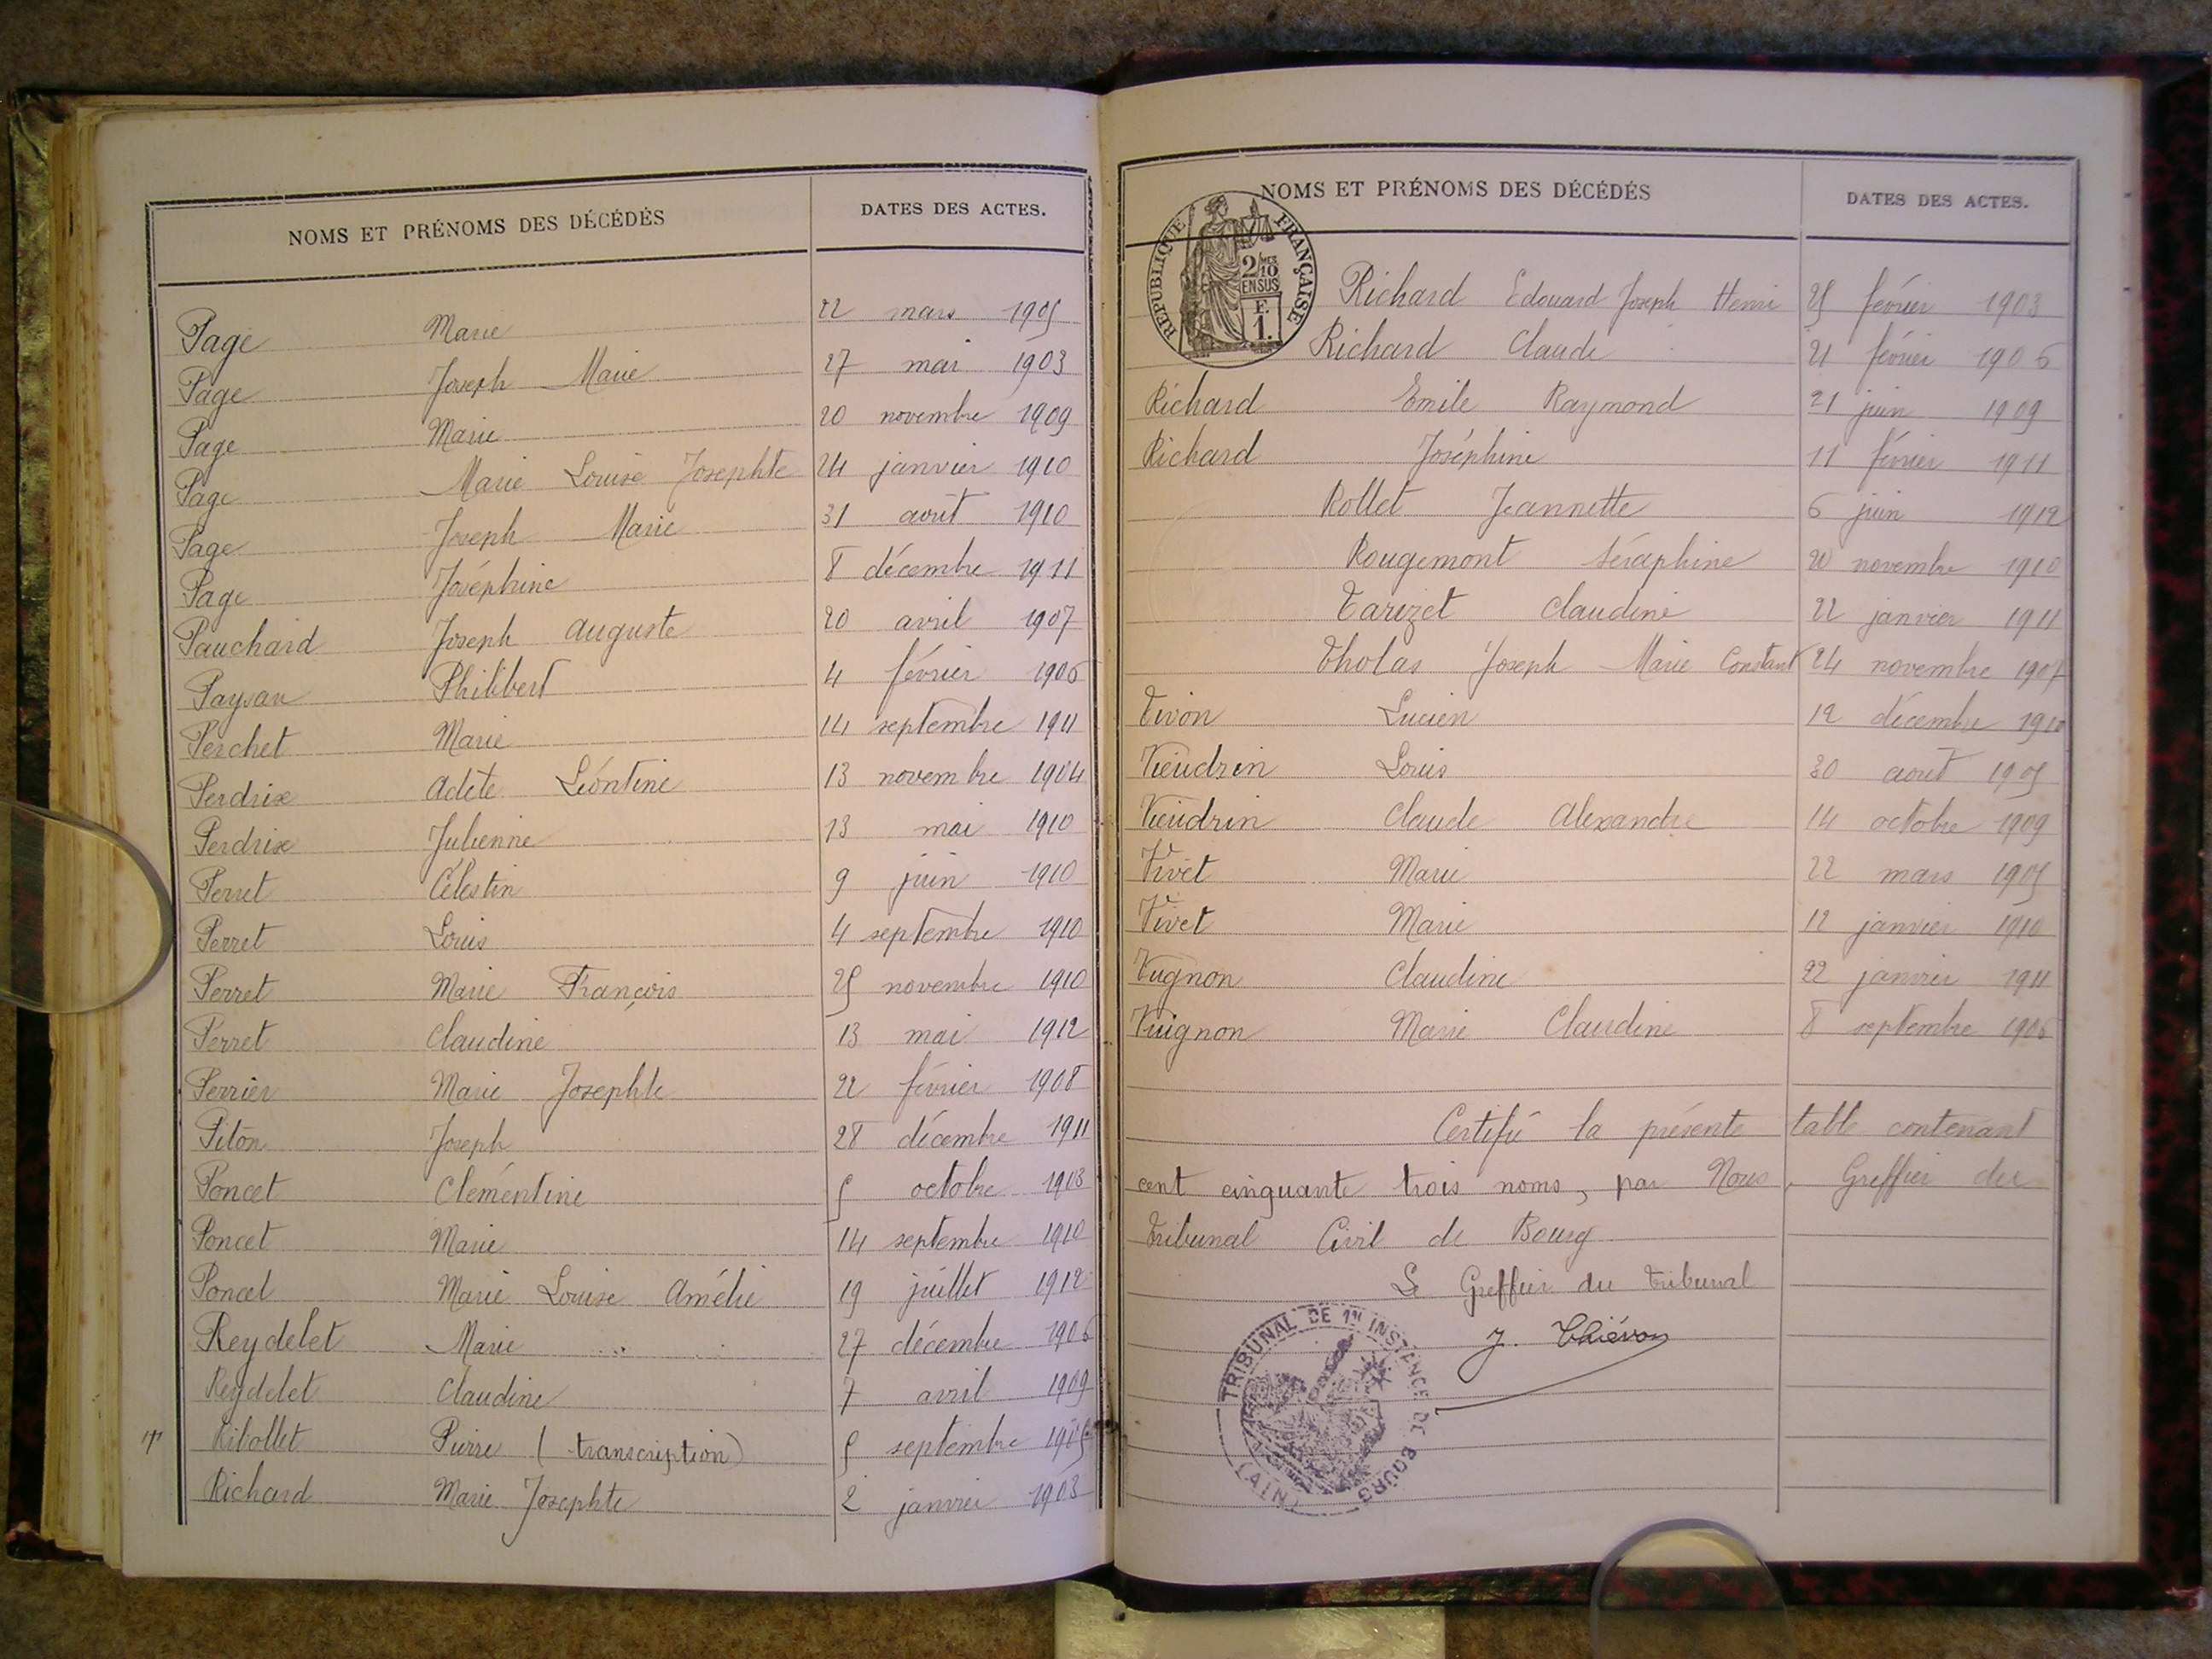 NOMS ET PRÉNOMS DES DÉCÉDÉS DATES DES ACTES.
Page Marie 22 mars 1905
Page Joseph Marie 27 mai 1903
Page Marie 20 novembre 1909
Page Marie Louise Josephte 24 janvier 1910
Page Joseph Marie 31 août 1910
Page Joséphine 8 décembre 1911
Pauchard Joseph Auguste 20 avril 1907
Paysan Philibert 4 février 1906
Perchet Marie 14 septembre 1911
Perdrix Adèle Léontine 13 novembre 1904
Perdrix Julienne 13 mai 1910
Perret Célestin 9 juin 1910
Perret Louis 4 septembre 1910
Perret Marie François 25 novembre 1910
Perret Claudine 13 mai 1912
Perrier Marie Josephte 22 février 1908
Piton Joseph 28 décembre 1911
Poncet Clémentine 5 octobre 1903
Poncet Marie 14 septembre 1910
Poncet Marie Louise Amélie 19 juillet 1912
Reydelet Marie 27 décembre 1906
Reydelet Claudine 7 avril 1909
Ribollet Pierre (transcription) 5 septembre 1905
Richard Marie Josephte 2 janvier 1903
NOMS ET PRÉNOMS DES DÉCÉDÉS DATES DES ACTES.
REPUBLIQUE FRANÇAISE
2/10
EN SUS
F.
1.
Richard Edouard Joseph Henri 25 février 1903
Richard Claude 21 février 1906
Richard Emile Raymond 21 juin 1909
Richard Joséphine 11 février 1911
Rollet Jeannette 6 juin 1912
Rougemont Séraphine 20 novembre 1910
Tarizet Claudine 22 janvier 1911
Tholas Joseph Marie Constant 24 novembre 1907
Tivon Lucien 12 décembre 1910
Vieudrin Louis 30 août 1905
Vieudrin Claude Alexandre 14 octobre 1909
Vivet Marie 22 mars 1905
Vivet Marie 12 janvier 1910
Vugnon Claudine 22 janvier 1911
Vuignon Marie Claudine 8 septembre 1906
Certifié la présente table contenant
cent cinquante trois noms, par Nous, Greffier du
Tribunal Civil de Bourg
Le Greffier du Tribunal
J. Thiévon
TRIBUNAL DE 1RE INSTANCE DE BOURG
(AIN)